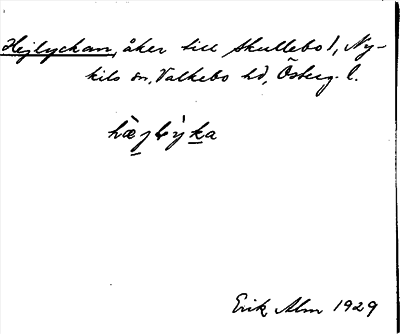 Hejlyckan, åker till Skullebo 1, Ny-
kils sn, Valkebo hd, Österg. l.
hæ̀jly̆̀ka
Erik Alm 1929